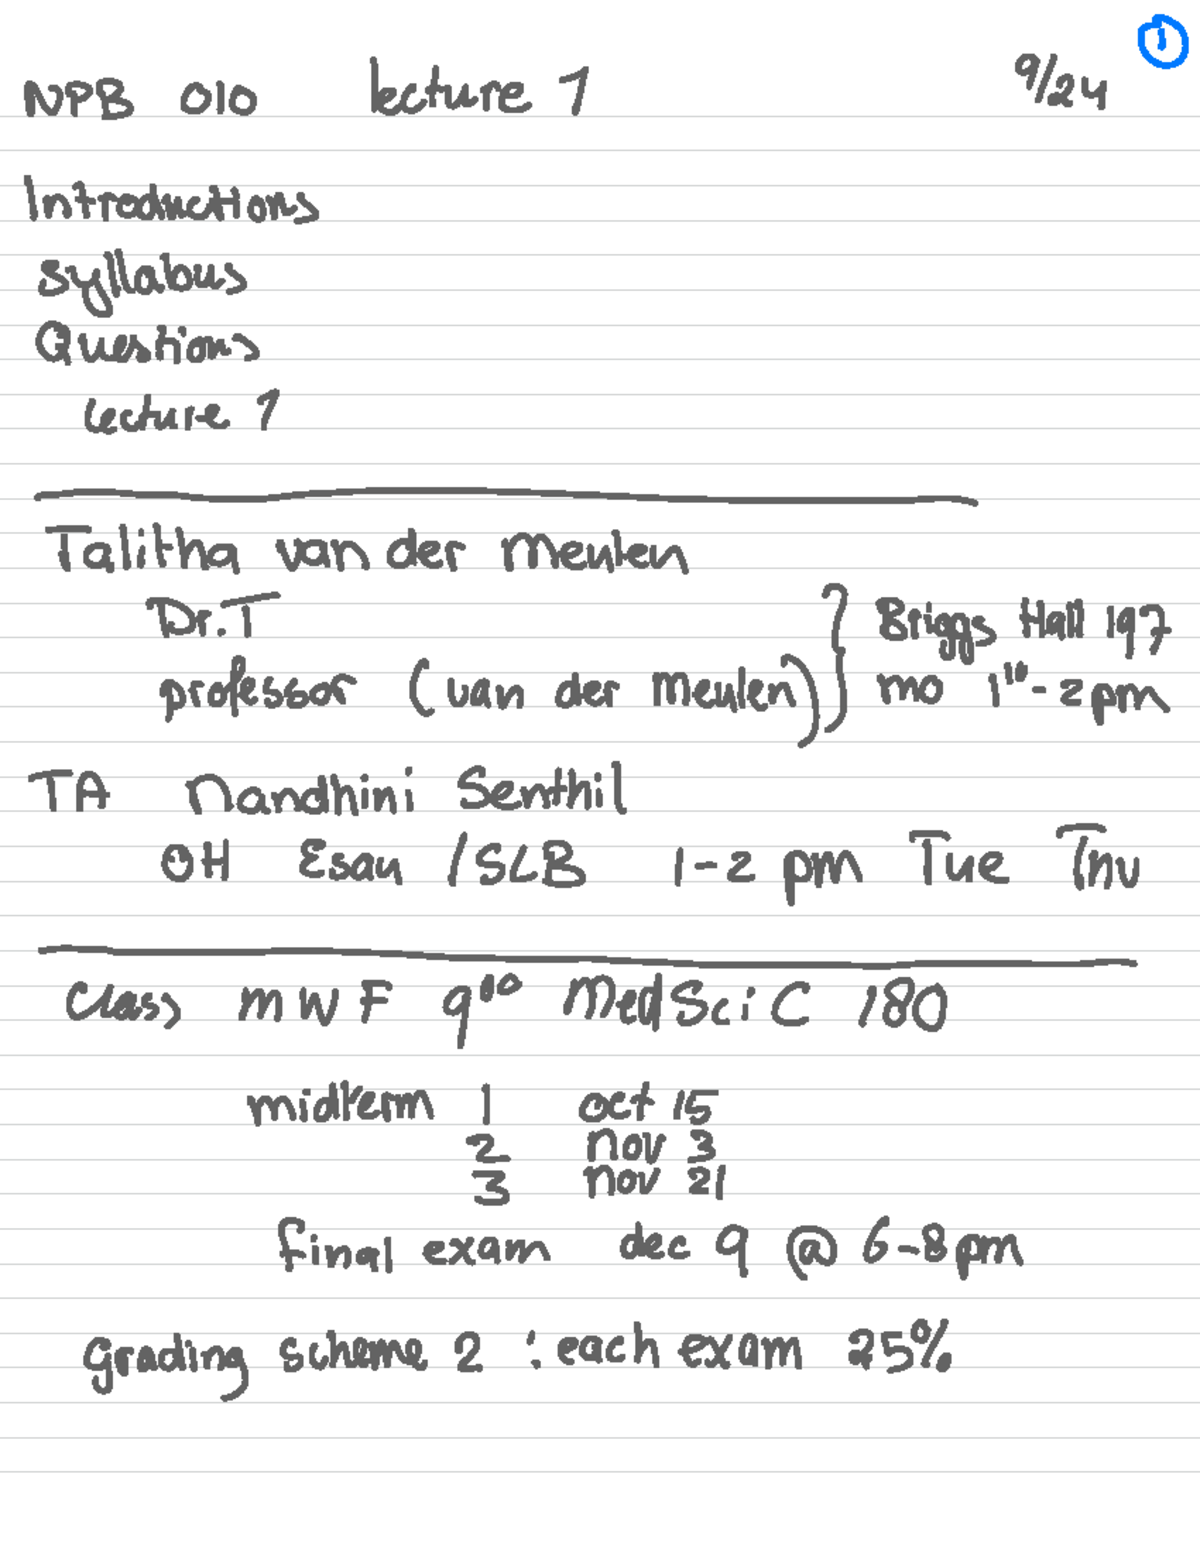 ①
NPB 010 lecture 1 9/24
Introductions
Syllabus
Questions
lecture 1
Talitha van der Meulen
Dr. T
professor (van der Meulen) } Briggs Hall 197
mo 1¹⁰-2pm
TA Nandhini Senthil
OH Esau /SLB 1-2 pm Tue Thu
Class MWF 9⁰⁰ MedSci C 180
midterm 1 oct 15
2 nov 3
3 nov 21
final exam dec 9 @ 6-8pm
Grading scheme 2 : each exam 25%